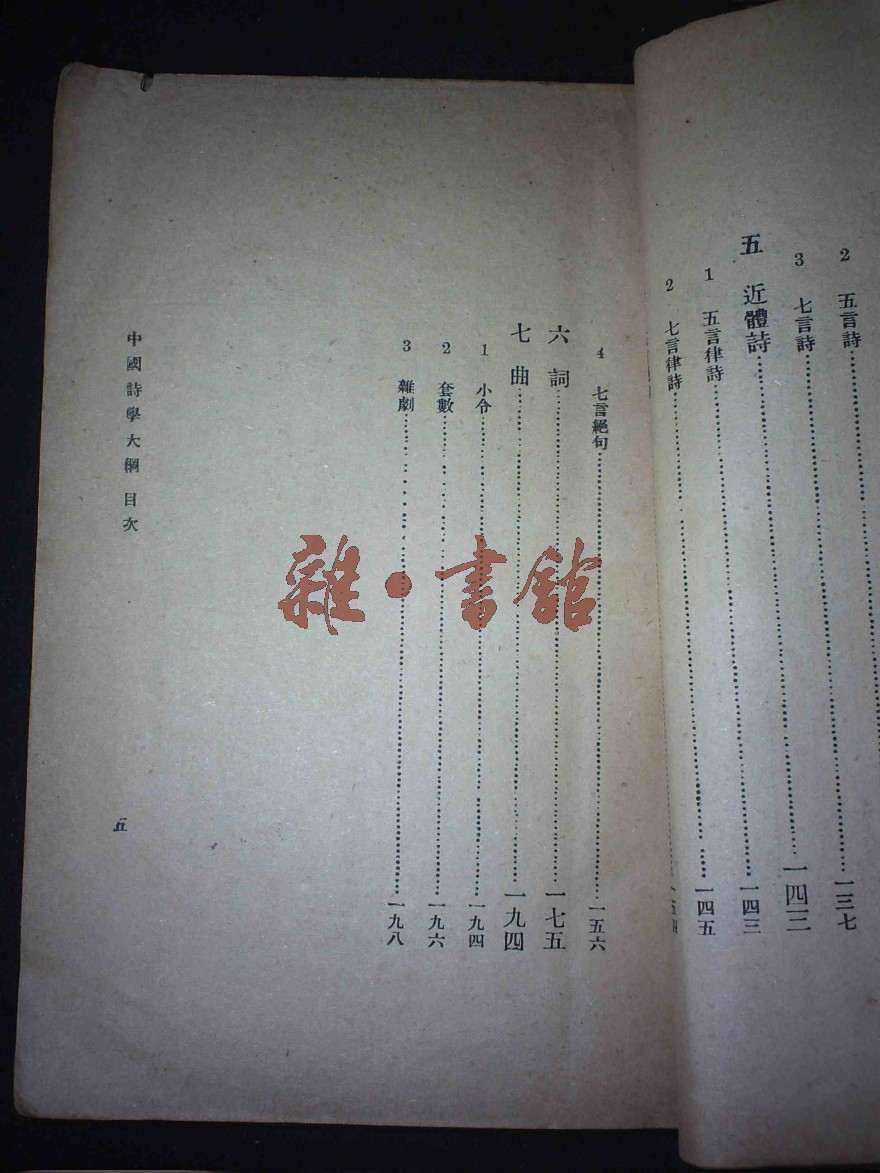 2 五言詩 一三七
3 七言詩 一四三
五 近體詩 一四三
1 五言律詩 一四五
2 七言律詩
4 七言絕句 一五六
六 詞 一七五
七 曲 一九四
1 小令 一九四
2 套數 一九六
3 雜劇 一九八
中國詩學大綱 目次
五
雜•書館